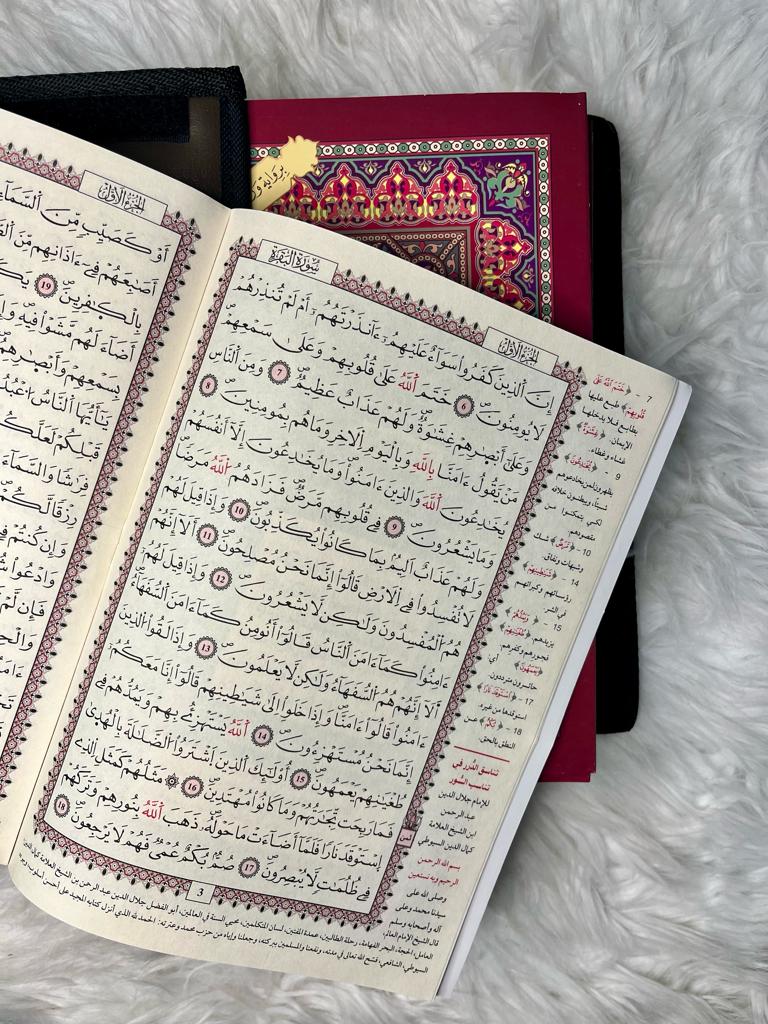 سُورَةُ الْبَقَرَةِ
الجزء الأول
إِنَّ ٱلذِينَ كَفَرُوا۟ سَوَآءٌ عَلَيْهِمُۥٓ ءَآنذَرْتَهُمُۥٓ أَمْ لَمْ تُنذِرْهُمْ
لَا يُومِنُونَ 6 خَتَمَ ٱللَّهُ عَلَىٰ قُلُوبِهِمْ وَعَلَىٰ سَمْعِهِمْ
وَعَلَىٰٓ أَبْصَٰرِهِمْ غِشَٰوَةٌ وَلَهُمْ عَذَابٌ عَظِيمٌ 7 وَمِنَ ٱلنَّاسِ
مَنْ يَّقُولُ ءَامَنَّا بِٱللَّهِ وَبِٱلْيَوْمِ ٱلَاخِرِ وَمَا هُم بِمُومِنِينَ 8
يُخَٰدِعُونَ ٱللَّهَ وَٱلذِينَ ءَامَنُوا۟ وَمَا يُخَٰدِعُونَ إِلَّآ أَنفُسَهُمْ
وَمَا يَشْعُرُونَ 9 فِى قُلُوبِهِم مَّرَضٌ فَزَادَهُمُ ٱللَّهُ مَرَضًا
وَلَهُمْ عَذَابٌ أَلِيمٌ بِمَا كَانُوا۟ يُكَذِّبُونَ 10 وَإِذَا قِيلَ لَهُمْ
لَا تُفْسِدُوا۟ فِى ٱلَارْضِ قَالُوٓا۟ إِنَّمَا نَحْنُ مُصْلِحُونَ 11 أَلَآ إِنَّهُمْ
هُمُ ٱلْمُفْسِدُونَ وَلَٰكِن لَّا يَشْعُرُونَ 12 وَإِذَا قِيلَ لَهُمُۥٓ
ءَامِنُوا۟ كَمَآ ءَامَنَ ٱلنَّاسُ قَالُوٓا۟ أَنُومِنُ كَمَآ ءَامَنَ ٱلسُّفَهَآءُ
أَلَآ إِنَّهُمْ هُمُ ٱلسُّفَهَآءُ وَلَٰكِن لَّا يَعْلَمُونَ 13 وَإِذَا لَقُوا۟ ٱلذِينَ
ءَامَنُوا۟ قَالُوٓا۟ ءَامَنَّا وَإِذَا خَلَوِا۟ الَىٰ شَيَٰطِينِهِمْ قَالُوٓا۟ إِنَّا مَعَكُمُۥٓ
إِنَّمَا نَحْنُ مُسْتَهْزِءُونَ 14 ٱللَّهُ يَسْتَهْزِئُ بِهِمْ وَيَمُدُّهُمْ فِى
طُغْيَٰنِهِمْ يَعْمَهُونَ 15 أُوْلَٰٓئِكَ ٱلذِينَ ٱشْتَرَوُا۟ ٱلضَّلَٰلَةَ بِالْهُدَىٰ
فَمَا رَبِحَت تِّجَٰرَتُهُمْ وَمَا كَانُوا۟ مُهْتَدِينَ 16 ۞ مَثَلُهُمْ كَمَثَلِ ٱلذِى
ٱسْتَوْقَدَ نَارًا فَلَمَّآ أَضَآءَتْ مَا حَوْلَهُۥ ذَهَبَ ٱللَّهُ بِنُورِهِمْ وَتَرَكَهُمْ
فِى ظُلُمَٰتٍ لَّا يُبْصِرُونَ 17 صُمٌّ بُكْمٌ عُمْىٌ فَهُمْ لَا يَرْجِعُونَ 18
3
7 - ﴿خَتَمَ اللَّهُ عَلَىٰ
قُلُوبِهِمْ﴾ طبع عليها
بطابع فلا يدخلها
الإيمان. ﴿غِشَٰوَةٌ﴾
غشاء وغطاء.
9 ﴿يُخَٰدِعُونَ﴾
10- ﴿مَرَضٌ﴾ شك
وشبهات ونفاق.
14 - ﴿شَيَٰطِينِهِمْ﴾
رؤسائهم وكبرائهم
في الشر.
15 - ﴿وَيَمُدُّهُمْ﴾
يزيدهم. ﴿طُغْيَٰنِهِمْ﴾
فجورهم وكفرهم.
﴿يَعْمَهُونَ﴾ أي
حائرون مترددون.
17- ﴿ٱسْتَوْقَدَ نَارًا﴾
استوقدها من غيره.
18 - ﴿بُكْمٌ﴾ عن
النطق بالحق.
تناسق الدرر في
تناسب السور
للإمام جلال الدين
عبد الرحمن
ابن الشيخ العلامة
كمال الدين السيوطي
بسم الله الرحمن
الرحيم وبه نستعين
وصلى الله على
سيدنا محمد وعلى
آله وأصحابه وسلم
قال الشيخ الإمام العالم
الجزء الأول
أَوْ كَصَيِّبٍ مِّنَ ٱلسَّمَآءِ
أَصَٰبِعَهُمْ فِىٓ ءَاذَانِهِم مِّنَ
بِالْكَٰفِرِينَ 19
أَضَآءَ لَهُم مَّشَوْا۟ فِيهِ
بِسَمْعِهِمْ وَأَبْصَٰرِهِمْ
يَٰٓأَيُّهَا ٱلنَّاسُ
قَبْلِكُمْ لَعَلَّكُمْ
فِرَٰشًا وَٱلسَّمَآءَ
رِزْقًا لَّكُمْ
وَإِن كُنتُمْ فِى
وَٱدْعُوا۟
فَإِن لَّمْ
برواية